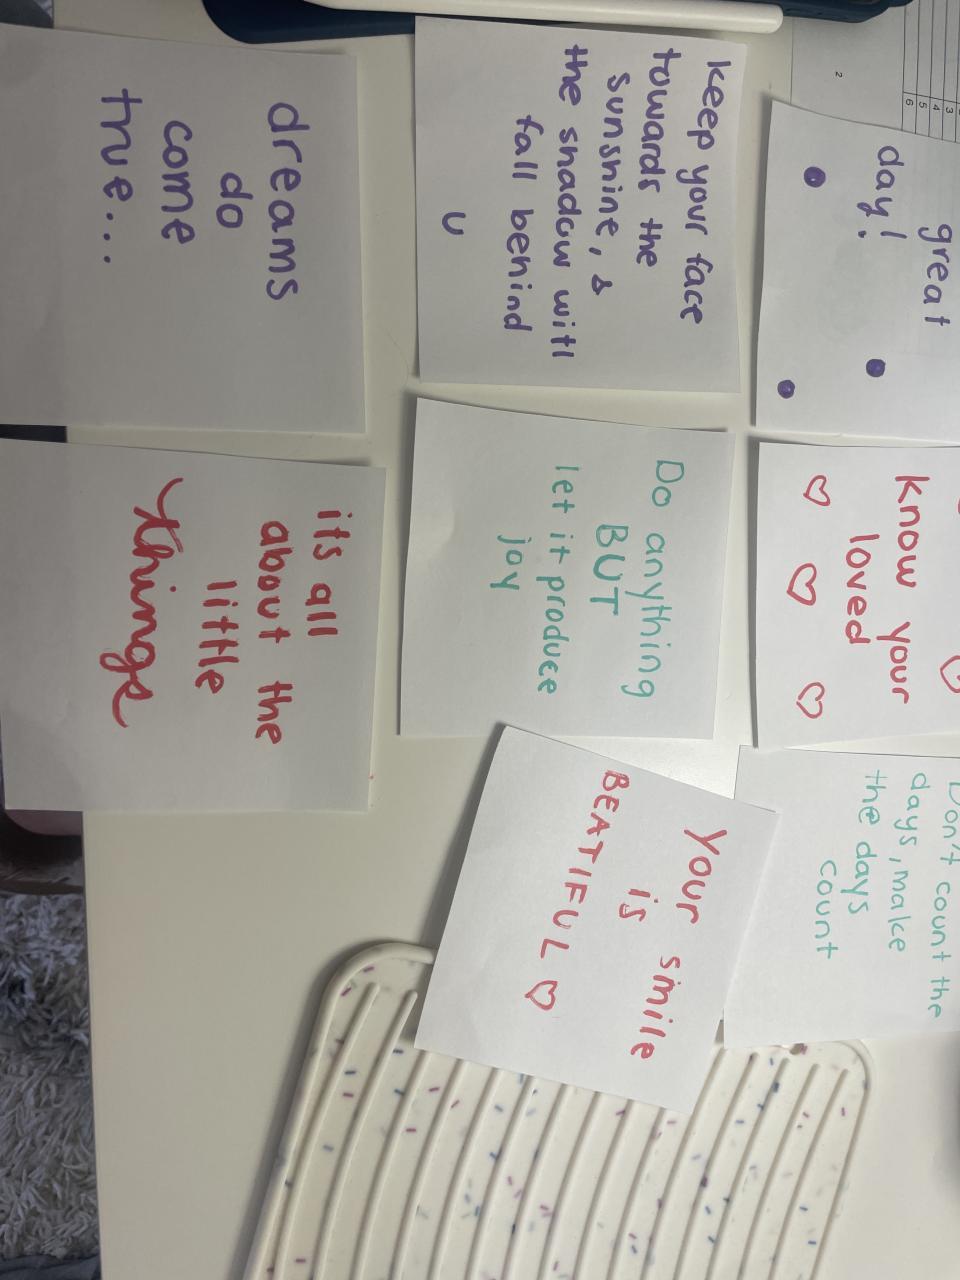 great
day!
Keep your face
towards the
sunshine, &
the shadow will
fall behind
U
dreams
do
come
true...
Know your
loved
Do anything
BUT
let it produce
joy
its all
about the
little
things
Don't count the
days, make
the days
count
Your smile
is
BEATIFUL ♡
2
3
4
5
6